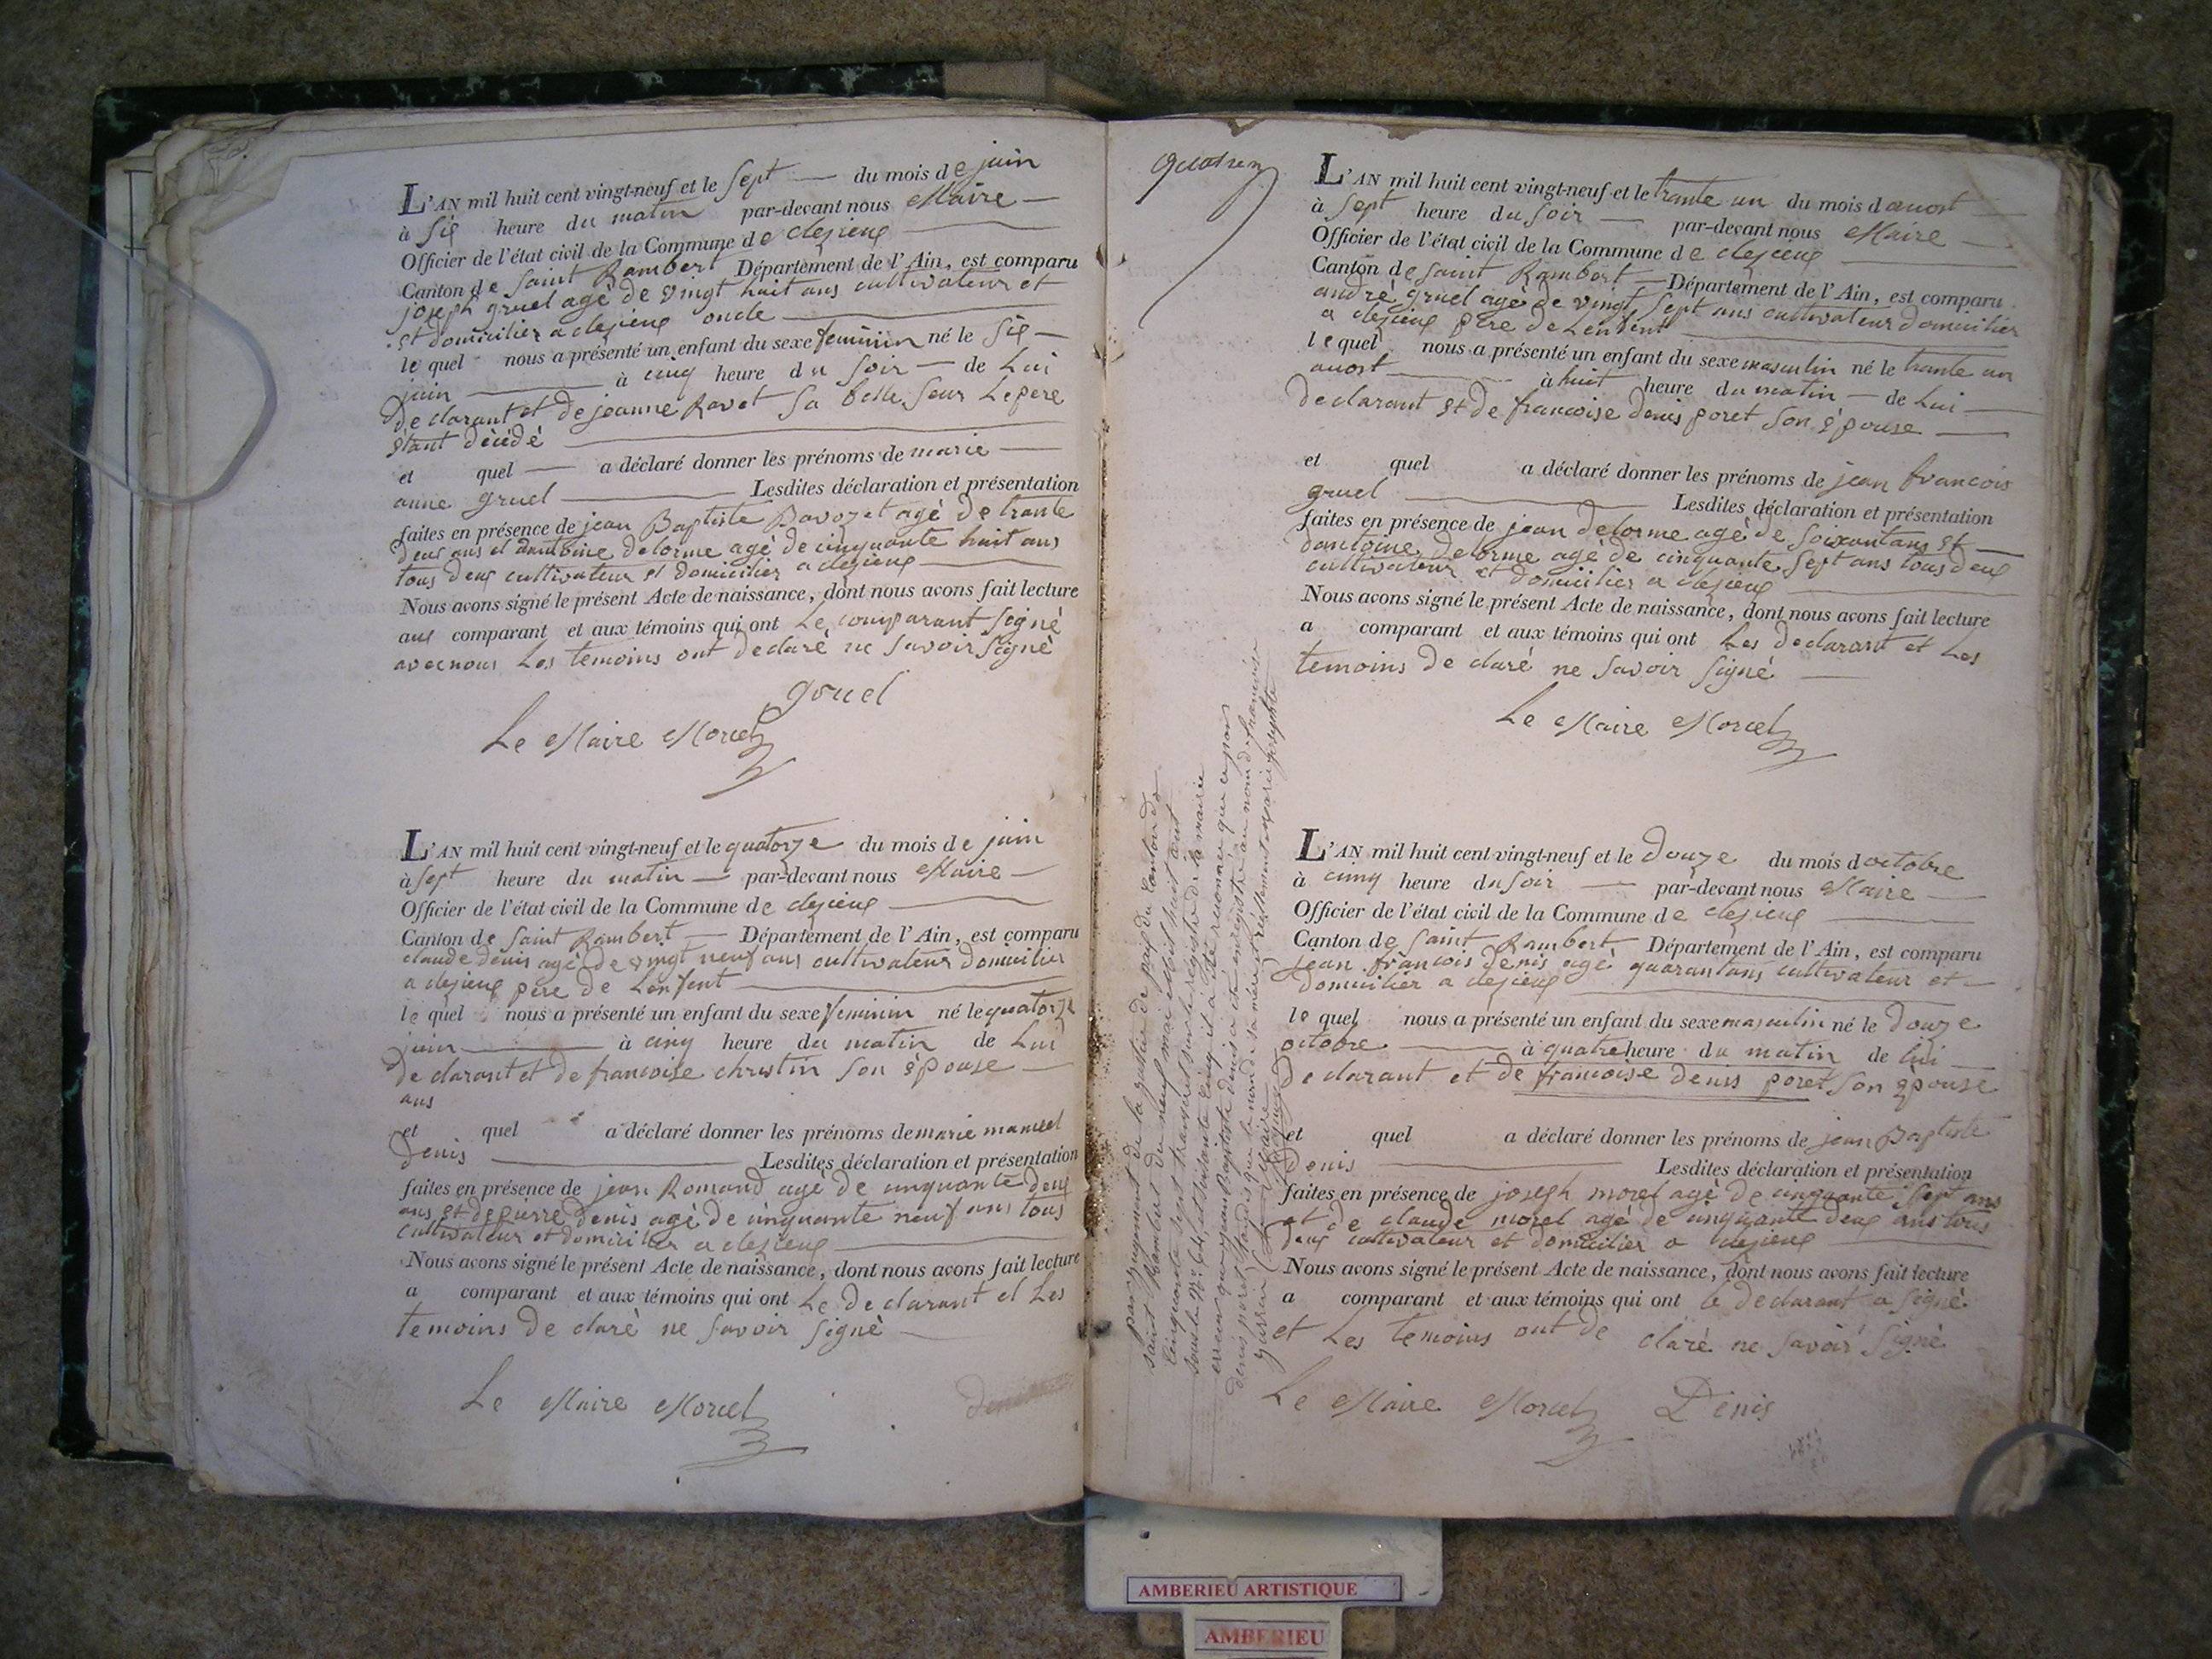 L'AN mil huit cent vingt-neuf et le sept du mois de juin
à six heure du matin par-devant nous Maire
Officier de l'état civil de la Commune de clezieux
Canton de Saint Rambert Département de l'Ain, est comparu
joseph gruel agé de vingt huit ans cultivateur et
et domicilier a clezieux oncle
le quel nous a présenté un enfant du sexe feminin né le six
juin à cinq heure du soir de Lui
declarant et de jeanne Ravet sa belle seur Le pere
étant décédé
et quel a déclaré donner les prénoms de marie
anne gruel Lesdites déclaration et présentation
faites en présence de jean Baptiste Bavozet agé de trante
deux ans et dantoine delorme agé de cinquante huit ans
tous deux cultivateur et domicilier a clezieux
Nous avons signé le présent Acte de naissance, dont nous avons fait lecture
aux comparant et aux témoins qui ont Le comparant signé
avec nous Les temoins ont declaré ne savoir signé
gruel
Le Maire Morcel
L'AN mil huit cent vingt-neuf et le quatorze du mois de juin
à sept heure du matin par-devant nous Maire
Officier de l'état civil de la Commune de clezieux
Canton de Saint Rambert Département de l'Ain, est comparu
claude denis agé de vingt neuf ans cultivateur domicilier
a clezieux pere de Lenfent
le quel nous a présenté un enfant du sexe feminin né le quatorze
juin à cinq heure du matin de Lui
declarant et de francoise christin son épouse
ans
et quel a déclaré donner les prénoms de marie
denis Lesdites déclaration et présentation
faites en présence de jean Romand agé de cinquante deux
ans et de pierre denis agé de cinquante neuf ans tous
cultivateur et domicilier a clezieux
Nous avons signé le présent Acte de naissance, dont nous avons fait lecture
a comparant et aux témoins qui ont Le declarant et Les
temoins de claré ne savoir signé
Le Maire Morcel
L'AN mil huit cent vingt-neuf et le trante un du mois d auost
à sept heure du soir par-devant nous Maire
Officier de l'état civil de la Commune de clezieux
Canton de saint Rambert Département de l'Ain, est comparu
andré gruel agé de vingt sept ans cultivateur domicilier
a clezieux pere de Lenfent
le quel nous a présenté un enfant du sexe masculin né le trante un
auost à huit heure du matin de Lui
declarant et de francoise denis poret son épouse
et quel a déclaré donner les prénoms de jean francois
gruel Lesdites déclaration et présentation
faites en présence de jean delorme agé de soixantans et
dantoine delorme agé de cinquante sept ans tous deux
cultivateur et domicilier a clezieux
Nous avons signé le présent Acte de naissance, dont nous avons fait lecture
a comparant et aux témoins qui ont Les declarant et Les
temoins de claré ne savoir signé
Le Maire Morcel
par jugement de la justice de paix du Canton de
saint Rambert du neuf mai mil huit cent
cinquante sept transcrit sur le registre de la mairie
sous le N°
il a été reconnu que c'est par
erreur que jean Baptiste denis a été enregistré au nom de francoise
denis poret, tandis que le nom de sa mère est réellement marie josephte
Le Maire
L'AN mil huit cent vingt-neuf et le douze du mois d octobre
à cinq heure du soir par-devant nous Maire
Officier de l'état civil de la Commune de clezieux
Canton de saint Rambert Département de l'Ain, est comparu
jean francois denis agé quarantans cultivateur et
domicilier a clezieux
le quel nous a présenté un enfant du sexe masculin né le douze
octobre à quatre heure du matin de lui
declarant et de francoise denis poret son epouse
et quel a déclaré donner les prénoms de jean Baptiste
denis Lesdites déclaration et présentation
faites en présence de joseph morel agé de cinquante sept ans
et de claude morel agé de cinquante deux ans tous
deux cultivateur et domicilier a clezieux
Nous avons signé le présent Acte de naissance, dont nous avons fait lecture
a comparant et aux témoins qui ont le declarant a signé
et Les temoins ont de claré ne savoir signé
Le Maire Morcel Denis
AMBERIEU ARTISTIQUE
AMBERIEU